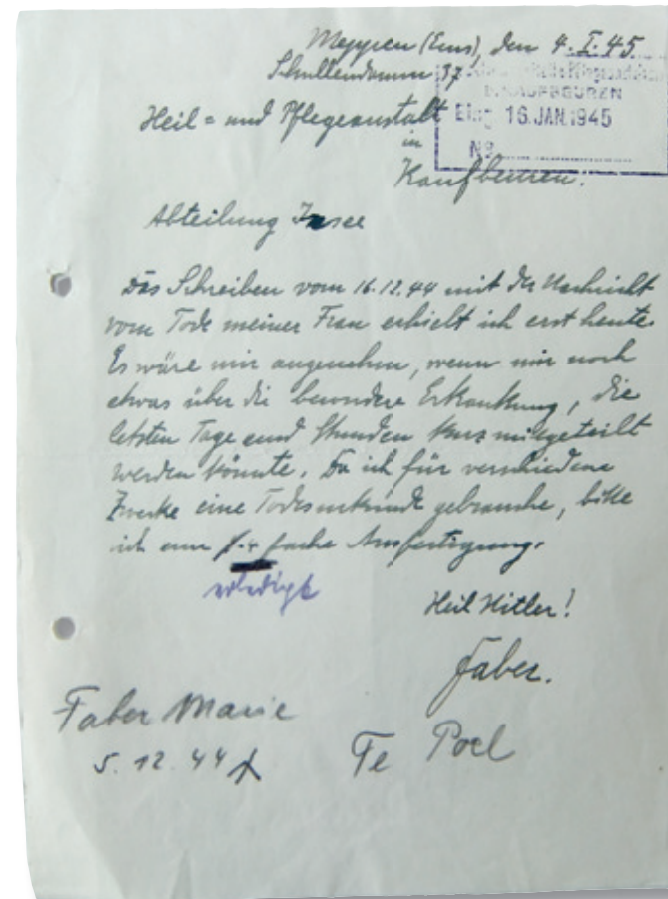 Meppen (Ems), den 4.I.45
Schullendamm 37
KAUFBEUREN
Eing. 16. JAN. 1945
No
Heil- und Pflegeanstalt
in
Kaufbeuren.
Abteilung Irsee
Das Schreiben vom 16.12.44 mit der Nachricht
vom Tode meiner Frau erhielt ich erst heute.
Es wäre mir angenehm, wenn mir noch
etwas über die besondere Erkrankung, die
letzten Tage und Stunden kurz mitgeteilt
werden könnte. Da ich für verschiedene
Zwecke eine Todesurkunde gebrauche, bitte
ich um fache Ausfertigung.
erledigt
Heil Hitler!
Faber.
Faber Marie
5.12.44
Te Poel